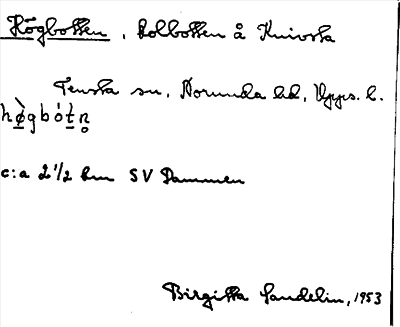 Högbotten, Kolbotten å Knivsta
Tensta sn, Norunda hd, Upps. l.
hø̀gbòtn̥
c:a 2 1/2 km SV Dammen
Birgitta Sandelin, 1953